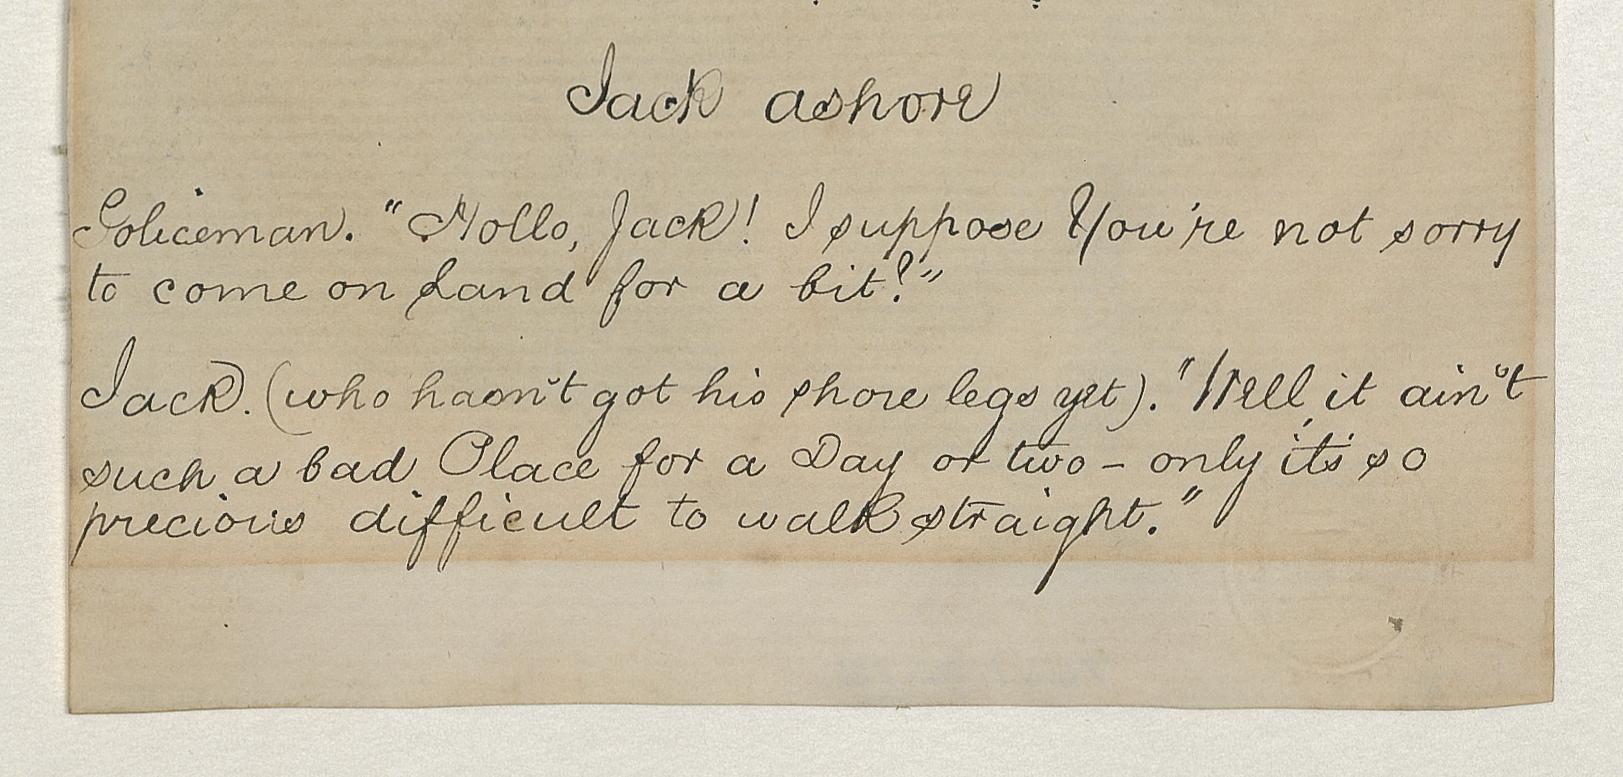 Jack ashore
Policeman. "Hollo, Jack! I suppose You're not sorry
to come on Land for a bit?"
Jack. (who hasn't got his shore legs yet). "Well, it ain't
such a bad Place for a Day or two – only it's so
precious difficult to walk straight."